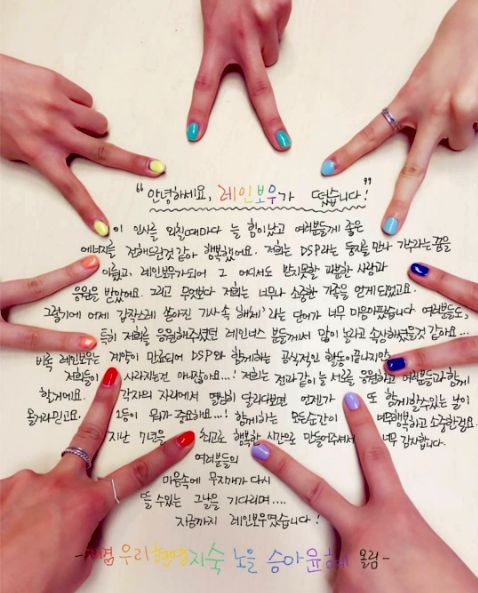 "안녕하세요, 레인보우가 떴습니다!"
이 인사를 외칠때마다 늘 힘이났고 여러분들께 좋은
에너지를 전해드린것 같아 행복했어요. 저희는 DSP라는 둥지를 만나 가수라는 꿈을
이뤘고, 레인보우가되어 그 어디서도 받지못할 과분한 사랑과
응원을 받았어요. 그리고 무엇보다 저희는 너무나 소중한 가족을 얻게되었고요.
그렇기에 어제 갑작스레 쏟아진 기사속 해체라는 단어가 너무 마음아팠습니다 여러분들도,
특히 저희를 응원해주셨던 레인너스 분들께서 많이 놀라고 속상해했을것 같아요...
비록 레인보우는 계약이 만료되어 DSP와 함께하는 공식적인 활동이 끝나지만,
저희들이 사라지는건 아니잖아요...! 저희는 전과 같이 늘 서로를 응원하고 여러분들과 함께
할거에요. 각자의 자리에서 열심히 달리다보면 언젠가 또 함께할수있는 날이
올거라믿고요. 1등이 뭐가 중요해요...! 함께하는 모든순간이 너무행복하고 소중한걸요.
지난 7년을 최고로 행복한 시간으로 만들어주셔서 너무 감사합니다.
여러분들의
마음속에 무지개가 다시
뜰 수있는 그날을 기다리며....
지금까지 레인보우였습니다!
- 재경 우리 현영 지숙 노을 승아 윤혜 올림 -